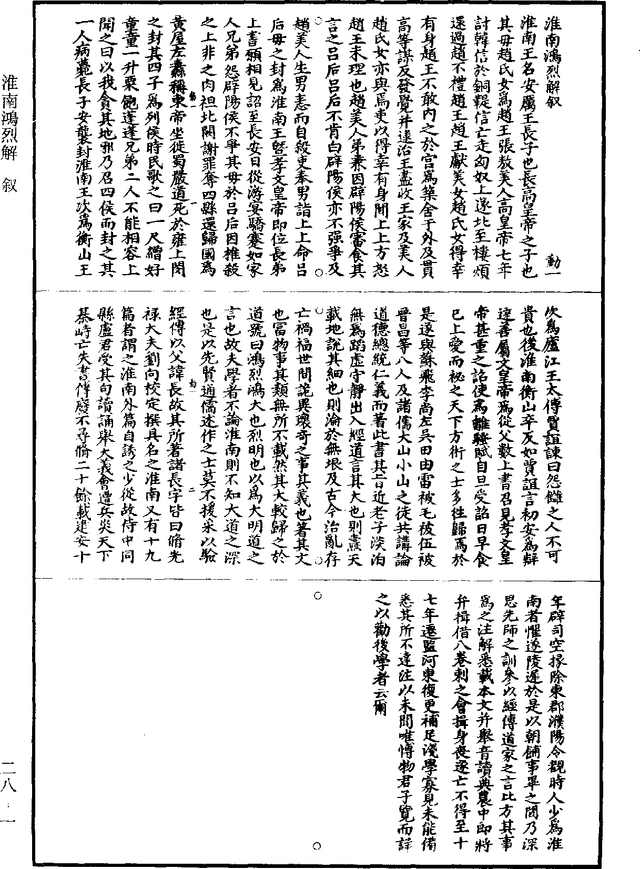 淮南鴻烈解叙
淮南王名安厲王長子也長高皇帝之子也
動一
其母趙氏女為趙王張敖美人高皇帝七年
討韓信於銅鞮信亡走匈奴上遂北至樓煩
還過趙不禮趙王趙王獻美女趙氏女得幸
有身趙王不敢內之於宮為築舍于外及貫
高等謀反發覺并逮治王盡收王家及美人
趙氏女亦與焉吏以得幸有身聞上上方怒
趙王未理也趙美人弟兼因辟陽侯審食其
言之呂后呂后不肯白辟陽侯亦不強爭及
趙美人生男恚而自殺吏奉男詣上上命呂
后母之封為淮南王暨孝文皇帝即位長弟
上書願相見詔至長安日從游宴驕蹇如家
人兄弟怨辟陽侯不爭其母於呂后因椎殺
之上非之肉袒北闕謝罪奪四縣還歸國為
黃屋左纛稱東帝坐徙蜀嚴道死於雍上閔
之封其四子為列侯時民歌之曰一尺繒好
童童一升粟飽蓬蓬兄弟二人不能相容上
聞之曰以我貪其地邪乃召四侯而封之其
一人病薨長子安襲封淮南王次為衡山王
次為廬江王太傅賈誼諫曰怨讎之人不可
貴也後淮南衡山卒反如賈誼言初安為辯
達善屬文皇帝為從父數上書召見孝文皇
帝甚重之詔使為離騷賦自旦受詔日早食
已上愛而秘之天下方術之士多往歸焉於
是遂與蘇飛李尚左吳田由雷被毛被伍被
晉昌等八人及諸儒大山小山之徒共講論
道德總統仁義而著此書其旨近老子淡泊
無為蹈虛守靜出入經道言其大也則燾天
載地說其細也則淪於無垠及古今治亂存
亡禍福世間詭異瓌奇之事其義也著其文
也富物事其類無所不載然其大較歸之於
道號曰鴻烈鴻大也烈明也以為大明道之
言也故夫學者不論淮南則不知大道之深
也是以先賢通儒述作之士莫不援采以驗
經傳以父諱長故其所著諸長字皆曰脩光
祿大夫劉向校定撰具名之淮南又有十九
篇者謂之淮南外篇自誘之少從故侍中同
縣盧君受其句讀誦舉大義會遭兵災天下
棊峙亡失書傳廢不尋脩二十餘載建安十
年辟司空掾除東郡濮陽令覩時人少為淮
南者懼遂陵遲於是以朝餔事畢之間乃深
思先師之訓參以經傳道家之言比方其事
為之注解悉載本文并舉音讀典農中郎將
弁揖借八卷刺之會揖身喪遂亡不得至十
七年遷監河東復更補足淺學寡見未能備
悉其所不達注以未聞唯博物君子覽而詳
之以勸後學者云爾
淮南鴻烈解 叙
二八-一